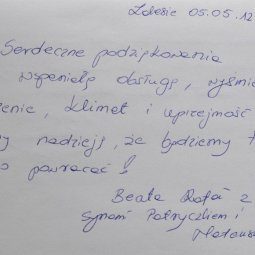 Zdbice 05.05.12
Serdeczne podziękowania
wspaniałą obsługę, wyśmie
zenie, klimat i uprzejmość
my nadzieję, że będziemy t
o powracać!
Beata z
synami Patryczkiem i